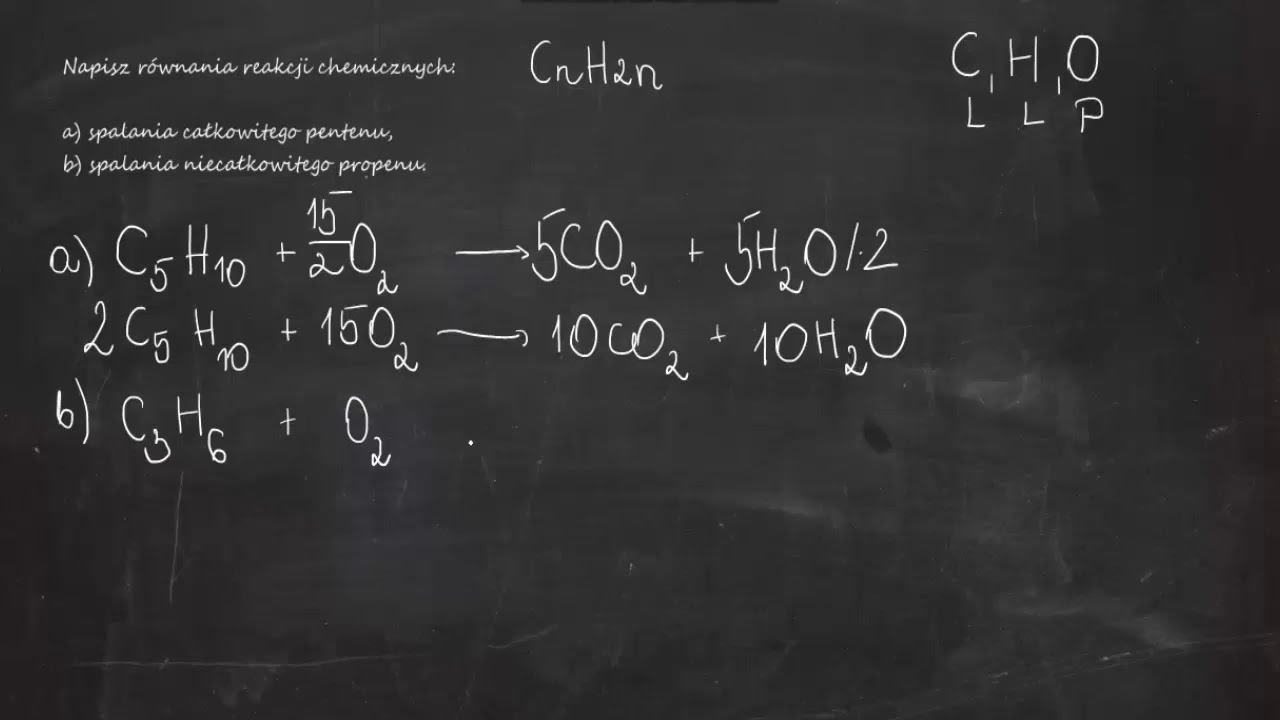 Napisz równania reakcji chemicznych:
CnH2n
C, H, O
L L P
a) spalania całkowitego pentenu,
b) spalania niecałkowitego propenu.
a) C₅H₁₀ + 15/2 O₂ → 5CO₂ + 5H₂O /·2
2C₅H₁₀ + 15O₂ → 10CO₂ + 10H₂O
b) C₃H₆ + O₂